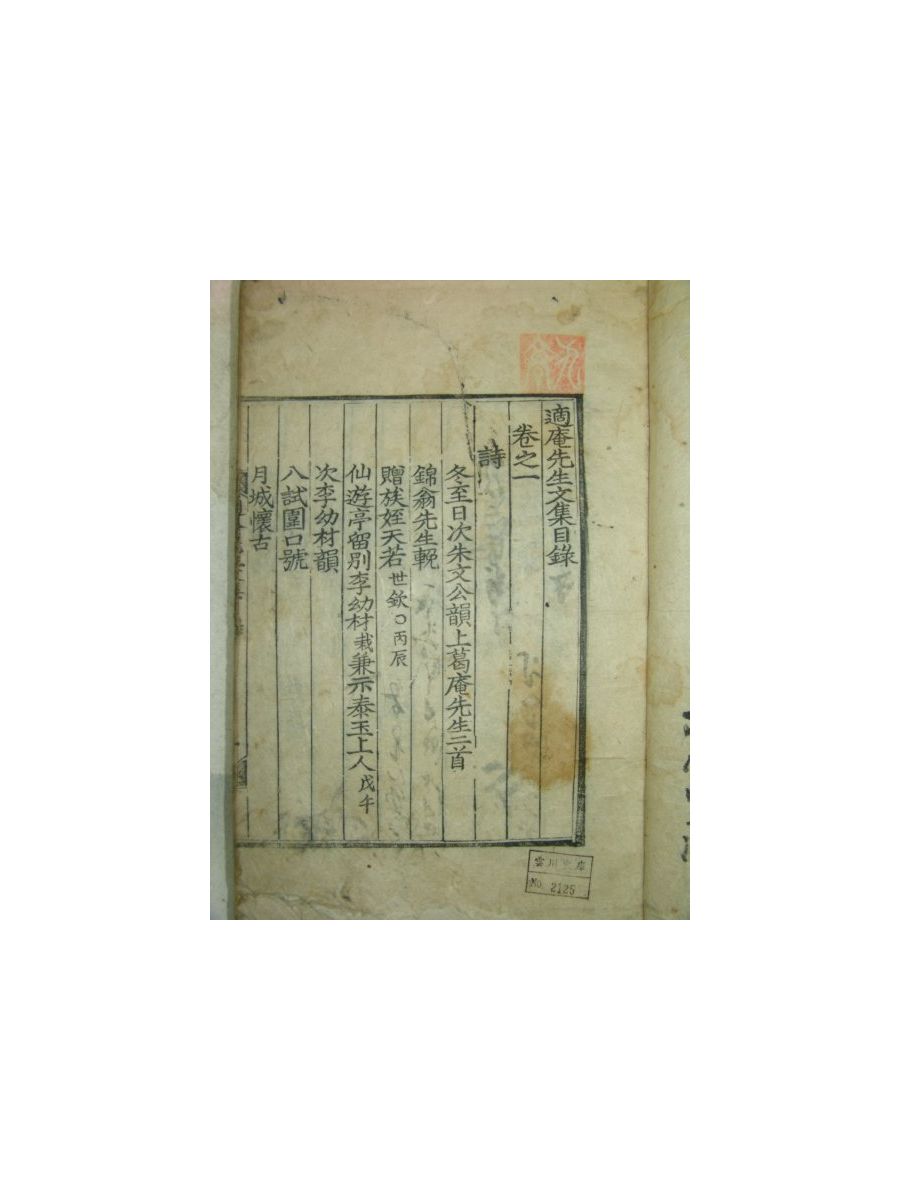 適庵先生文集目錄
卷之一
詩
冬至日次朱文公韻上葛庵先生二首
錦翁先生輓
贈族姪天若世欽○丙辰
仙遊亭留別李幼材栽兼示泰玉上人戊午
次李幼材韻
入試圍口號
月城懷古
雲川文庫
No. 2125